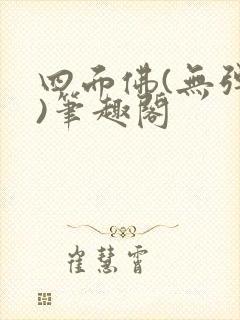 四面佛(無彈
)筆趣閣
崔慧霄